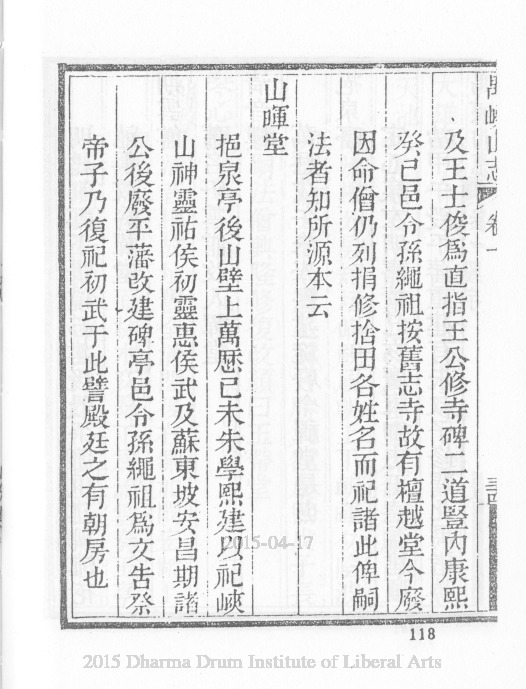 禺峽山志 卷一 三四
及王士俊爲直指王公修寺碑二道豎內康熙
癸巳邑令孫繩祖按舊志寺故有檀越堂今廢
因命僧仍列捐修捨田各姓名而祀諸此俾嗣
法者知所源本云
山暉堂
挹泉亭後山壁上萬厯己未朱學熙建以祀峽
山神靈祐侯初靈惠侯武及蘇東坡安昌期諸
公後廢平藩改建碑亭邑令孫繩祖爲文告祭
帝子乃復祀初武于此譬殿廷之有朝房也
2015-04-17
118
2015 Dharma Drum Institute of Liberal Arts